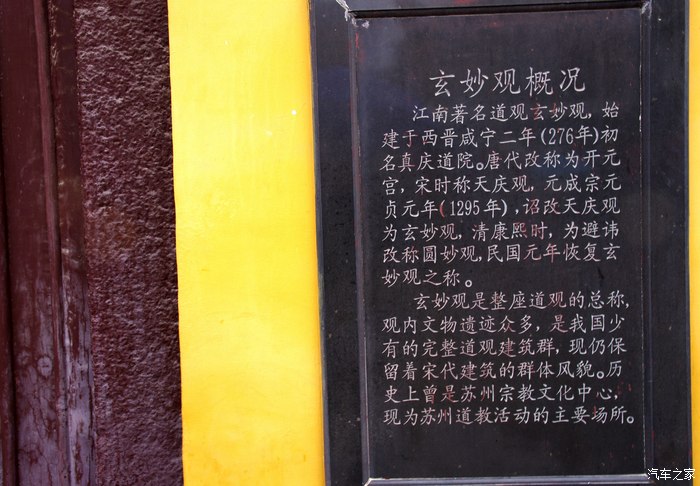 玄妙观概况
江南著名道观玄妙观，始
建于西晋咸宁二年(276年)初
名真庆道院。唐代改称为开元
宫，宋时称天庆观，元成宗元
贞元年(1295年)，诏改天庆观
为玄妙观，清康熙时，为避讳
改称圆妙观,民国元年恢复玄
妙观之称。
玄妙观是整座道观的总称,
观内文物遗迹众多，是我国少
有的完整道观建筑群，现仍保
留着宋代建筑的群体风貌。历
史上曾是苏州宗教文化中心,
现为苏州道教活动的主要场所。
汽车之家